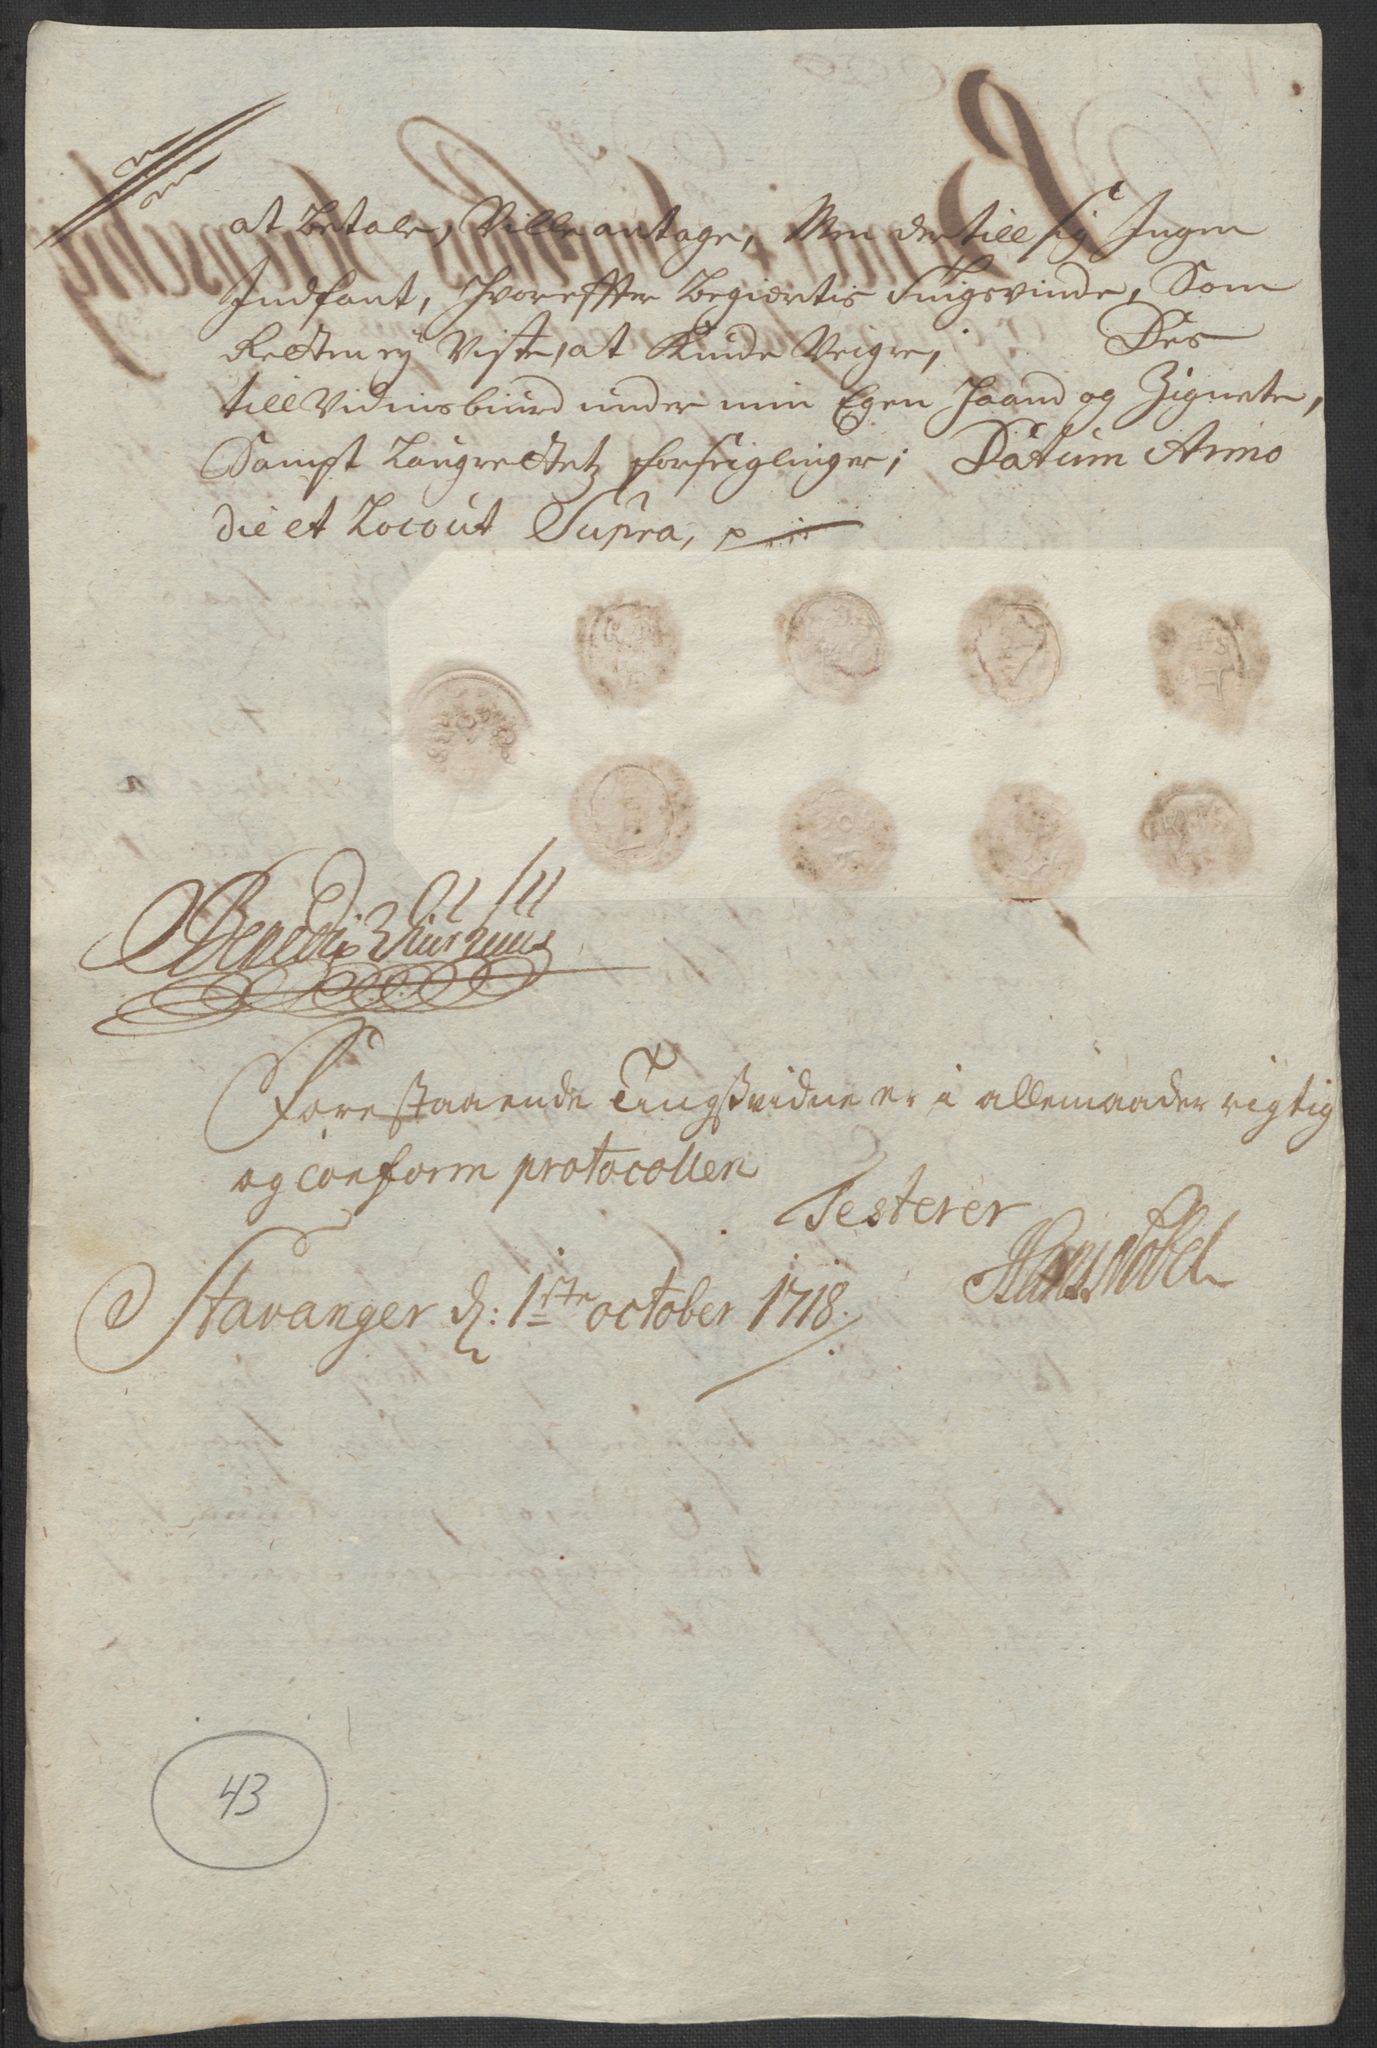 at betale, Ville antage, Men der till sig Ingen
Indfant, Hvoreffter begiærtis Tingsvinde, Som
Retten ey Viste, at Kunde Veigre, Des
till Vidnisbiurd under min Egen Haand og Zignete,
Sampt Laugrettetz forseiglinger; Datum Anno
die et Loco ut Supra,
Forestaaende Tingsvidne er i allemaader rigtig
og conform protocollen
Testerer
Hans Nobel
Stavanger d: 1ste october 1718.
43